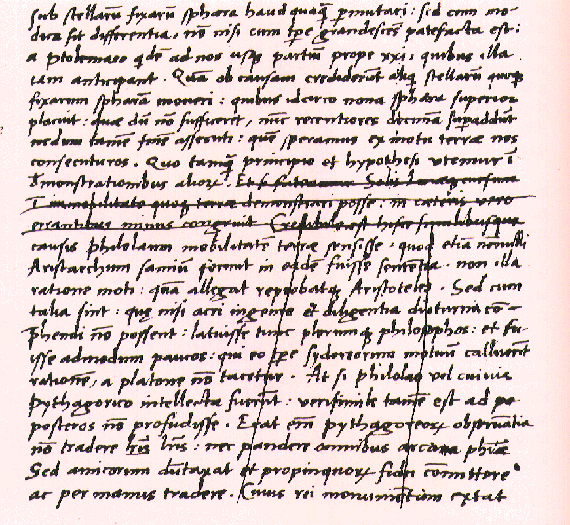 sub stellarū fixarū sphæra haud quaq̃ ꝑmutari: sed cum mo-
dica sit differentia, nō nisi cum tp̄e grandescēs patefacta est:
a ptolemæo qdē ad nos usqꝫ partiū prope xxi, quibus illa
iam anticipant. Quā ob causam crediderūt aliq̃ stellarū quoqꝫ
fixarum sphæram moveri: quibus idcirco nona sphæra superior
placuit: quæ dū nō sufficeret, nūc recentiores decimā supaddūt
nedum tamē finē assecuti: quē speramus ex motu terræ nos
consecuturos. Quo tamq̃ principio et hypothesi utemur ī
dmonstrationibus alioꝝ. Et si fateamur Solis Lunæqꝫ cursum
ī immobilitate quoqꝫ terræ demonstrari posse: in cæteris vero
errantibus minus congruit. Credibile est hisce similibusque
causis philolaum mobilitatē terræ sensisse. quod etiā nonulli
Aristarchum samiū ferunt in eadē fuisse sententia. non illa
ratione moti: quā allegat reprobatqꝫ Aristoteles. Sed cum
talia sint: quę nisi acri ingenio et diligentia diuturna cō-
p̄hendi nō possent: latuisse tunc plerumqꝫ philosophos: et fu-
isse admodum paucos: qui eo tp̄e sydereorum motuum calluerīt
rationē, a platone nō tacetur. At si philolao vel cuivis
pythagorico intellecta fuerīt: verisimile tamē est ad po
posteros nō profudisse. Erat em̄ pythagoreoꝝ observātia
nō tradere libris: nec pandere omnibus arcana phiæ
Sed amicorum dūtaxat et propinquoꝝ fidei cōmittere
ac per manus tradere. Cuius rei monumentum extat